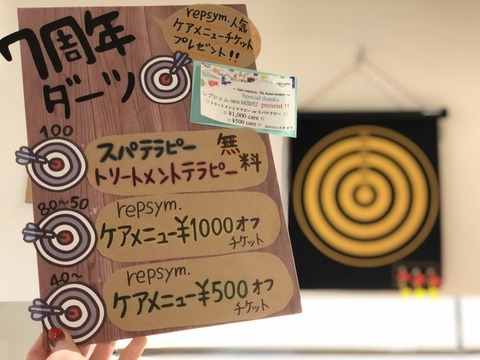 7周年
ダーツ
repsym.人気
ケアメニューチケット
プレゼント!!
Special thanks
present!!
☆トリートメントテラピー or スパテラピー☆
☆¥1,000 care☆
☆¥500 care☆
100
スパテラピー
トリートメントテラピー
無料
80~50
repsym.
ケアメニュー¥1000オフ
チケット
40~
repsym.
ケアメニュー¥500オフ
チケット